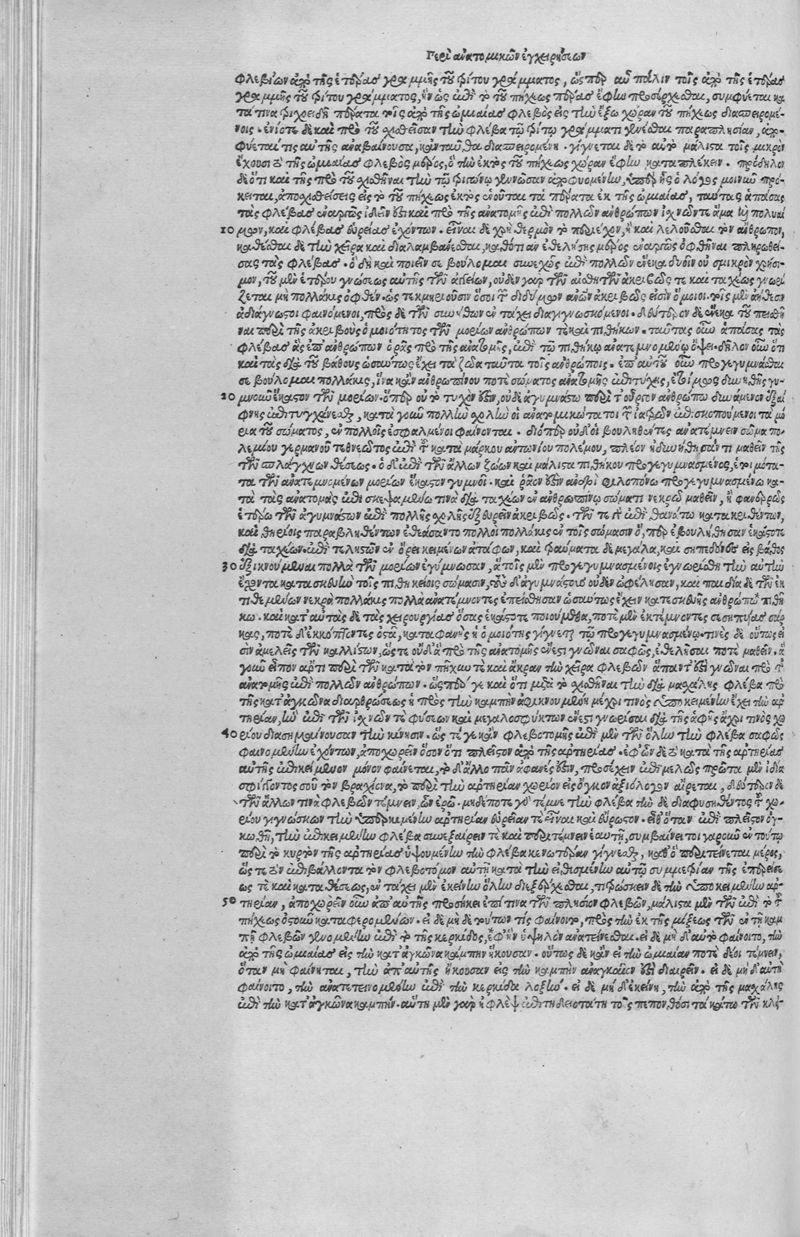 Περὶ ἀνατομικῶν ἐγχειρήσεων
φλεβίων ἀπὸ τῆς ἑτέρας γραμμῆς τοῦ φίτου γράμματος, ὥσπερ αὖ πάλιν τοῖς ἀπὸ τῆς ἑτέρας
γραμμῆς τοῦ φίτου γράμματος,
τὰ πέρατα τοῖς ἀπὸ τῆς ὠμιαίας φλεβὸς εἰς τὴν ἔξω χώραν τοῦ πήχεως διασπειρομέ
νοις. ἐνίοτε δὲ καὶ πρὸ τοῦ σχισθεῖσαν τὴν φλέβα τῷ φίτῳ γράμματι γενέσθαι παραπλησίαν, ἀπο
φύεταί τις αὐτῆς ἀναβαίνουσα, κἀνταῦθα διασπειρομένη. γίγνεται δὲ τὸ αὐτὸ μάλιστα τοῖς μικρὸν
ἔχουσι τῆς ὠμιαίας φλεβὸς μέρος, ὃ τὴν ἐκτὸς τοῦ πήχεως χώραν ἔφην καταπλέκειν. πρόδηλον
δὲ ὅτι καὶ τῆς πρὸ τοῦ σχισθῆναι τὴν
κειται, ἀποσχισθείσης εἰς τὸ τοῦ πήχεως ἐκτὸς ἑνοῦται τὰ πέρατα ἐκ τῆς ὠμιαίας, ταύτας ἁπάσας
τὰς φλέβας ἐναργῶς ἰδεῖν ἔστι καὶ πρὸ τῆς ἀνατομῆς ἐπὶ πολλῶν ἀνθρώπων ἰσχνῶν τε ἅμα καὶ πολυαί
10 μων, καὶ φλέβας εὐρείας ἐχόντων. εἶναι δὲ χρὴ θερμὸν τὸ περιέχον, ἢ καὶ λελοῦσθαι τὸν ἄνθρωπον,
καθεῖσθαι δὲ τὴν χεῖρα καὶ διαλαμβάνεσθαι, καθότι ἂν ἐθελήσῃς μέρος ἐναργῶς ὀφθῆναι πληρωθεί
σας τὰς φλέβας. ὃ δὴ καὶ ποιεῖν σε βούλομαι συνεχῶς ἐπὶ πολλῶν ἕνεκα δυοῖν οὐ σμικρῶν χρησί
μων, τοῦ μὲν ἑτέρου γνώσεως αὐτῆς τῶν ἀγγείων, οὐδὲν γὰρ τῶν αἰσθητῶν ἀκριβῶς τε καὶ ταχέως γνωρί
ζεται μὴ πολλάκις ὀφθέν. ὡς τεκμηριοῦσιν ὅσοι τῶν διδύμων ἀκριβῶς εἰσὶν ὅμοιοι. τοῖς μὲν ἀήθεσιν
ἀδιάγνωστοι φαινόμενοι, πρὸς δὲ τῶν συνήθων ἐν τάχει διαγιγνωσκόμενοι. δεύτερον δὲ ἕνεκα τοῦ πεισθῆ
ναι περὶ τῆς ἀκριβοῦς ὁμοιότητος τῶν μορίων ἀνθρώπων τε καὶ πιθήκων. ταύτας οὖν ἁπάσας τὰς
φλέβας ἃς ἐπ' ἀνθρώπων ὁρᾷς πρὸ τῆς ἀνατομῆς, ἐπὶ τῷ πιθήκῳ ἀνατεμνομένῳ ὄψει. δῆλον οὖν ὅτι
καὶ τὰς διὰ τοῦ βάθους ὡσαύτως ἔχει τὰ ζῶα ταῦτα τοῖς ἀνθρώποις. ἐπ' αὐτοῦ οὖν προγεγυμνάσθαι
σε βούλομαι πολλάκις, ἵνα κἂν ἀνθρωπίνου ποτὲ σώματος ἀνατομῆς ἐπιτύχῃς, ἑτοίμως δυνηθῇς γυ
20 μνοῦν ἕκαστον τῶν μορίων. ὅπερ οὐ τὸ τυχόν ἐστιν, οὐδὲ ἀγυμνάστῳ περὶ τοὖργον ἀνθρώπῳ δυνάμενον ἐξαί
φνης ἐπιτυγχάνεσθαι, κατὰ γοῦν πολλὴν σχολὴν οἱ ἀνατομικώτατοι τῶν ἰατρῶν ἐπισκοπούμενοι τὰ μό
ρια τοῦ σώματος, ἐν πολλοῖς ἐσφαλμένοι φαίνονται. διόπερ οὐδὲ οἱ βουληθέντες ἀνατέμνειν σῶμα πο
λεμίου γερμανοῦ τεθνεῶτος ἐπὶ τοῦ κατὰ μάρκου ἀντωνίου πολέμου, πλέον ἠδυνήθησάν τι μαθεῖν τῆς
τῶν σπλάγχνων θέσεως. ὁ δ' ἐπὶ τῶν ἄλλων ζώων καὶ μάλιστα πιθήκου προγεγυμνασμένος, ἑτοιμότα
τα τῶν ἀνατεμνομένων μορίων ἕκαστον γυμνοῖ. καὶ ῥᾷόν ἐστιν ἀνδρὶ φιλοπόνῳ προγεγυμνασμένῳ κα
τὰ τὰς ἀνατομὰς ἐπισκεψαμένῳ τινὰ διὰ ταχέων ἐν ἀνθρωπίνῳ σώματι νεκρῷ μαθεῖν, ἢ φανερῶς
ἑτέρῳ τῶν ἀγυμνάστων ἐπὶ πολλῆς σχολῆς ἐξευρεῖν ἀκριβῶς. τῶν τε γὰρ ἐπὶ θανάτῳ κατακριθέντων,
καὶ θηρίοις παραβληθέντων ἐθεάσαντο πολλοὶ πολλάκις ἐν τοῖς σώμασιν, ὅπερ ἐβουλήθησαν ἑκάστοτε
διὰ ταχέων. ἐπί τε λῃστῶν ἐν ὄρει κειμένων ἀτάφων, καὶ τραύματα δὲ μεγάλα, καὶ σηπεδόνες εἰς βάθος
30 ἐξικνούμεναι πολλὰ τῶν μορίων ἐγύμνωσαν, ἃ τοῖς μὲν προγεγυμνασμένοις ἐγνωρίσθη τὴν αὐτὴν
ἔχοντα κατασκευὴν τοῖς πιθηκείοις σώμασιν, τοὺς δ' ἀγυμνάστους οὐδὲν ὠφέλησαν, καὶ παιδία δὲ τῶν ἐκ
τιθεμένων νεκρὰ πολλάκις πολλὰ ἀνατέμνοντες ἐπείσθησαν ὡσαύτως ἔχειν κατασκευῆς ἄνθρωπον πιθή
κῳ. καὶ κατ' αὐτὰς δὲ τὰς χειρουργίας ὅσας ἑκάστοτε ποιούμεθα, ποτὲ μὲν ἐκτέμνοντες σεσηπυίας σάρ
κας, ποτὲ δ' ἐκκόπτοντες ὀστᾶ, καταφανὴς ἡ ὁμοιότης γίγνεται τῷ προγεγυμνασμένῳ. τινὲς δὲ οὕτως εἰ
σὶν ἀμελεῖς τῶν καλλίστων, ὥστε οὐδ' ἃ πρὸ τῆς ἀνατομῆς ἔνεστι γνῶναι σαφῶς, ἐθέλουσί ποτε μαθεῖν. ἃ
γοῦν εἶπον ἄρτι περὶ τῶν κατὰ τὸν πῆχύν τε καὶ ἄκραν τὴν χεῖρα φλεβῶν ἅπαντ' ἔστι γνῶναι πρὸ τῆς
ἀνατομῆς ἐπὶ πολλῶν ἀνθρώπων. ὥσπερ γε καὶ ὅτι μετὰ τὸ σχισθῆναι τὴν διὰ μασχάλης φλέβα πρὸ
τῆς κατ' ἀγκῶνα διαρθρώσεως ἡ πρὸς τὴν καμπὴν ἀφικνουμένη μέχρι τινὸς ὑποκειμένην ἔχει τὴν ἀρ
τηρίαν, ἣν ἐπὶ τῶν ἰσχνῶν τε φύσεων καὶ μεγαλοσφύκτων ἔνεστι γνωρίσαι διὰ τῆς ἁφῆς ἄχρι τινὸς χω
40 ρίου διασημαίνουσαν τὴν κίνησιν. ὥς τε γε κἂν φλεβοτομῇς ἐπὶ μὲν τῶν ὅλην τὴν φλέβα σαφῶς
φαινομένην ἐχόντων, ἀποχωρεῖν ὅσον ὅτι πλεῖστον ἀπὸ τῆς ἀρτηρίας. ἐφ' ὧν δὲ κατὰ τῆς ἀρτηρίας
αὐτῆς ἐπικείμενον μόνον φαίνεται, τὸ δ' ἄλλο πᾶν ἀφανές ἐστιν, προσέχειν ἐπιμελῶς πρῶτα μὲν εἰ δια
σφίγξαντός σου τὸν βραχίονα, τὸ περὶ τὴν ἀρτηρίαν χωρίον εἰς ὄγκον ἀξιόλογον αἴρεται, δεύτερον δὲ
τῶν ἄλλων τινὰ φλεβῶν τέμνειν, ὧν ἐρῶ. μηδέποτε
ρίου γιγνώσκων τὴν ὑποκειμένην ἀρτηρίαν εὐρεῖάν τε εἶναι καὶ εὔρωστον.
κωθῇ, τὴν ἐπικειμένην φλέβα συνεξαίρειν τε καὶ περιτέμνειν ἑαυτῇ, συμβαίνει τοιγαροῦν ἐν τούτῳ
περὶ τὸ κυρτὸν τῆς ἀρτηρίας ὑψουμένην τὴν φλέβα κενωτέραν γίγνεσθαι, καθ' ὃ περιτείνεται μέρος,
ὥς τε ἂν ἐπιβάλλοντα τὸν φλεβοτόμον αὐτῇ κατὰ τὴν εἰθισμένην αὐτῷ συμμετρίαν τῆς ἐπερείσε
ως τε καὶ καταθέσεως, ἐν τάχει μὲν ἐκείνην ὅλην διεξέρχεσθαι, τιτρώσκειν δὲ τὴν ὑποκειμένην ἀρ
50 τηρίαν, ἀποχωρεῖν οὖν ἀπ' αὐτῆς προσήκει ἐπί τινα τῶν πλησίον φλεβῶν, μάλιστα μὲν τῶν ἐπὶ τὸ τοῦ
πήχεως ὀστοῦν καταφερομένων. εἰ δὲ μὴ τούτων τις φαίνοιτο, πρὸς τὴν ἐκ τῆς μίξεως τῶν ἐν τῇ καμ
πῇ φλεβῶν γενομένην ἐπὶ τὸ τῆς κερκίδος, ἐφ' ἣν ὑψηλὸν ἀνατείνεσθαι. εἰ δὲ μὴ δ' αὐτὸ φαίνοιτο, τὴν
ἀπὸ τῆς ὠμιαίας εἰς τὴν κατ' ἀγκῶνα καμπὴν ἥκουσαν. οὕτως δὲ κἂν εἰ τὴν ὠμιαίαν ποτὲ δέοι τέμνειν,
ὅταν μὴ φαίνηται, τὴν ἀπ' αὐτῆς ἥκουσαν εἰς τὴν καμπὴν ἀναγκαῖόν ἐστι διαιρεῖν. εἰ δὲ μὴ δ' αὕτη
φαίνοιτο, τὴν ἀνατεινομένην ἐπὶ τὴν κερκίδα λοξήν. εἰ δὲ μὴ δ' ἐκείνη, τὴν ἀπὸ τῆς μασχάλης
ἐπὶ τὴν κατ' ἀγκῶνα καμπήν. αὕτη μὲν γὰρ ἡ φλὲψ ἐπιτηδειοτάτη τοῖς πεπονθόσι τὰ κάτω τῶν κλει